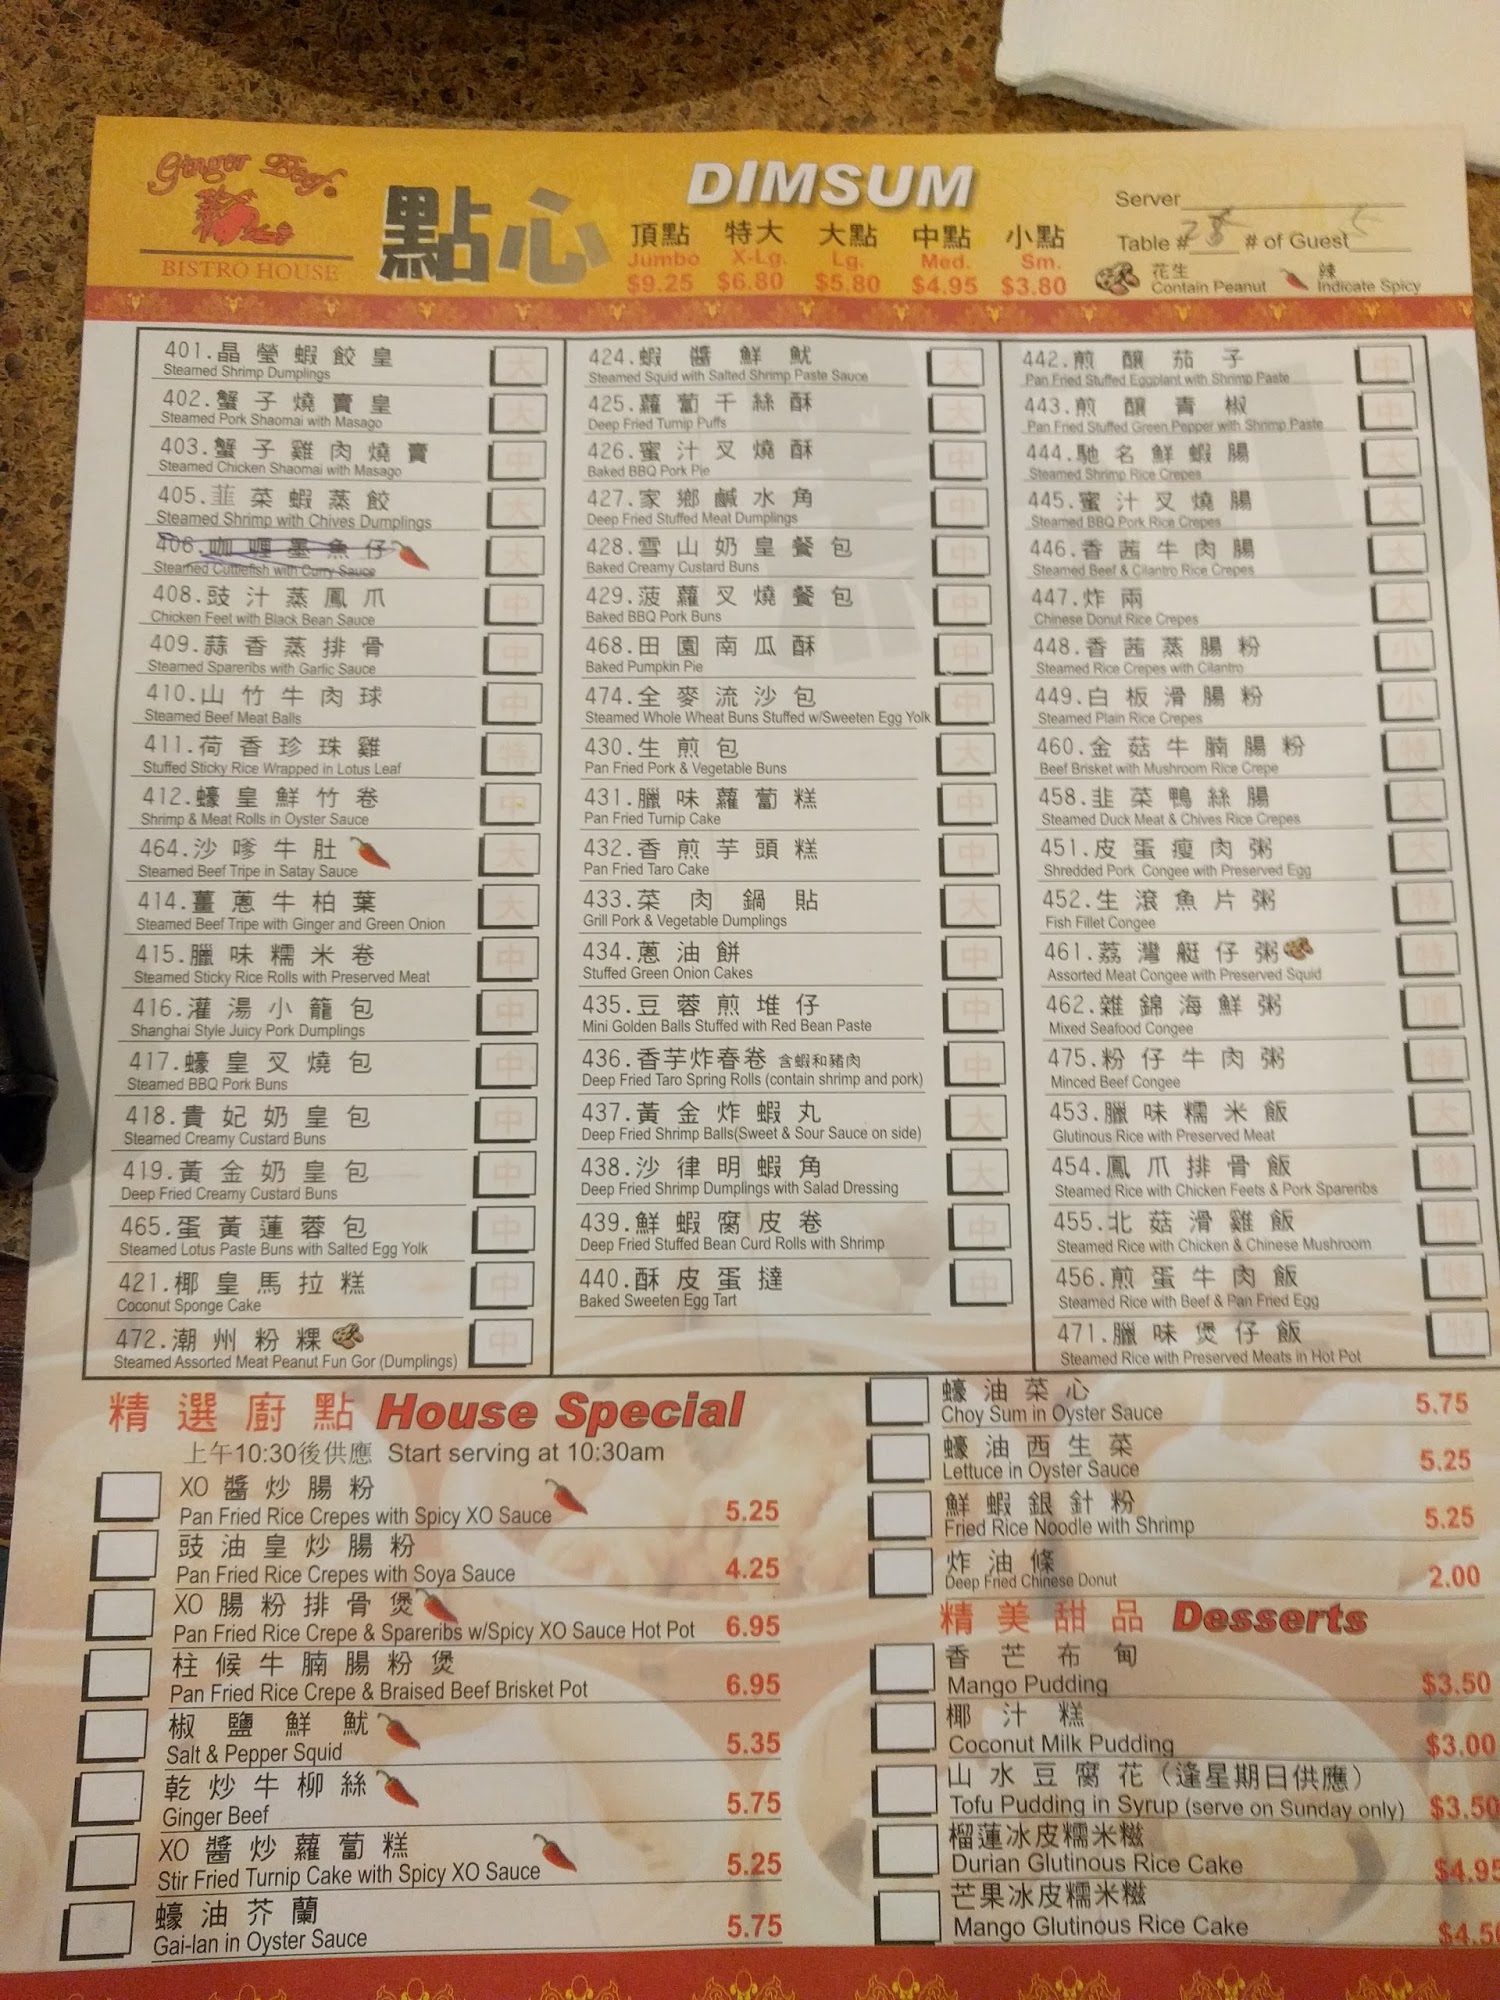 Ginger Beef
BISTRO HOUSE
點心
DIMSUM
頂點 特大 大點 中點 小點
Jumbo X-Lg. Lg. Med. Sm.
$9.25 $6.80 $5.80 $4.95 $3.80
Server
Table # 28 # of Guest 5
花生
Contain Peanut
辣
Indicate Spicy
401.晶瑩蝦餃皇 大
Steamed Shrimp Dumplings
402.蟹子燒賣皇 大
Steamed Pork Shaomai with Masago
403.蟹子雞肉燒賣 中
Steamed Chicken Shaomai with Masago
405.韮菜蝦蒸餃 大
Steamed Shrimp with Chives Dumplings
406.咖喱墨魚仔 大
Steamed Cuttlefish with Curry Sauce
408.豉汁蒸鳳爪 中
Chicken Feet with Black Bean Sauce
409.蒜香蒸排骨 中
Steamed Spareribs with Garlic Sauce
410.山竹牛肉球 中
Steamed Beef Meat Balls
411.荷香珍珠雞 特
Stuffed Sticky Rice Wrapped in Lotus Leaf
412.蠔皇鮮竹卷 中
Shrimp & Meat Rolls in Oyster Sauce
464.沙嗲牛肚 大
Steamed Beef Tripe in Satay Sauce
414.薑蔥牛柏葉 大
Steamed Beef Tripe with Ginger and Green Onion
415.臘味糯米卷 中
Steamed Sticky Rice Rolls with Preserved Meat
416.灌湯小籠包 中
Shanghai Style Juicy Pork Dumplings
417.蠔皇叉燒包 中
Steamed BBQ Pork Buns
418.貴妃奶皇包 中
Steamed Creamy Custard Buns
419.黃金奶皇包 中
Deep Fried Creamy Custard Buns
465.蛋黃蓮蓉包 中
Steamed Lotus Paste Buns with Salted Egg Yolk
421.椰皇馬拉糕 中
Coconut Sponge Cake
472.潮州粉粿 中
Steamed Assorted Meat Peanut Fun Gor (Dumplings)
424.蝦醬鮮魷 大
Steamed Squid with Salted Shrimp Paste Sauce
425.蘿蔔千絲酥 大
Deep Fried Turnip Puffs
426.蜜汁叉燒酥 中
Baked BBQ Pork Pie
427.家鄉鹹水角 中
Deep Fried Stuffed Meat Dumplings
428.雪山奶皇餐包 中
Baked Creamy Custard Buns
429.菠蘿叉燒餐包 中
Baked BBQ Pork Buns
468.田園南瓜酥 中
Baked Pumpkin Pie
474.全麥流沙包 中
Steamed Whole Wheat Buns Stuffed w/Sweeten Egg Yolk
430.生煎包 大
Pan Fried Pork & Vegetable Buns
431.臘味蘿蔔糕 中
Pan Fried Turnip Cake
432.香煎芋頭糕 中
Pan Fried Taro Cake
433.菜肉鍋貼 大
Grill Pork & Vegetable Dumplings
434.蔥油餅 中
Stuffed Green Onion Cakes
435.豆蓉煎堆仔 中
Mini Golden Balls Stuffed with Red Bean Paste
436.香芋炸春卷 含蝦和豬肉 中
Deep Fried Taro Spring Rolls (contain shrimp and pork)
437.黃金炸蝦丸 大
Deep Fried Shrimp Balls(Sweet & Sour Sauce on side)
438.沙律明蝦角 大
Deep Fried Shrimp Dumplings with Salad Dressing
439.鮮蝦腐皮卷 中
Deep Fried Stuffed Bean Curd Rolls with Shrimp
440.酥皮蛋撻 中
Baked Sweeten Egg Tart
442.煎釀茄子 中
Pan Fried Stuffed Eggplant with Shrimp Paste
443.煎釀青椒 中
Pan Fried Stuffed Green Pepper with Shrimp Paste
444.馳名鮮蝦腸 大
Steamed Shrimp Rice Crepes
445.蜜汁叉燒腸 大
Steamed BBQ Pork Rice Crepes
446.香茜牛肉腸 大
Steamed Beef & Cilantro Rice Crepes
447.炸兩 大
Chinese Donut Rice Crepes
448.香茜蒸腸粉 小
Steamed Rice Crepes with Cilantro
449.白板滑腸粉 小
Steamed Plain Rice Crepes
460.金菇牛腩腸粉 特
Beef Brisket with Mushroom Rice Crepe
458.韭菜鴨絲腸 大
Steamed Duck Meat & Chives Rice Crepes
451.皮蛋瘦肉粥 大
Shredded Pork Congee with Preserved Egg
452.生滾魚片粥 特
Fish Fillet Congee
461.荔灣艇仔粥 特
Assorted Meat Congee with Preserved Squid
462.雜錦海鮮粥 頂
Mixed Seafood Congee
475.粉仔牛肉粥 特
Minced Beef Congee
453.臘味糯米飯 大
Glutinous Rice with Preserved Meat
454.鳳爪排骨飯 特
Steamed Rice with Chicken Feets & Pork Spareribs
455.北菇滑雞飯 特
Steamed Rice with Chicken & Chinese Mushroom
456.煎蛋牛肉飯 特
Steamed Rice with Beef & Pan Fried Egg
471.臘味煲仔飯 特
Steamed Rice with Preserved Meats in Hot Pot
精選廚點 House Special
上午10:30後供應 Start serving at 10:30am
XO醬炒腸粉
Pan Fried Rice Crepes with Spicy XO Sauce 5.25
豉油皇炒腸粉
Pan Fried Rice Crepes with Soya Sauce 4.25
XO腸粉排骨煲
Pan Fried Rice Crepe & Spareribs w/Spicy XO Sauce Hot Pot 6.95
柱候牛腩腸粉煲
Pan Fried Rice Crepe & Braised Beef Brisket Pot 6.95
椒鹽鮮魷
Salt & Pepper Squid 5.35
乾炒牛柳絲
Ginger Beef 5.75
XO醬炒蘿蔔糕
Stir Fried Turnip Cake with Spicy XO Sauce 5.25
蠔油芥蘭
Gai-lan in Oyster Sauce 5.75
蠔油菜心
Choy Sum in Oyster Sauce 5.75
蠔油西生菜
Lettuce in Oyster Sauce 5.25
鮮蝦銀針粉
Fried Rice Noodle with Shrimp 5.25
炸油條
Deep Fried Chinese Donut 2.00
精美甜品 Desserts
香芒布甸
Mango Pudding $3.50
椰汁糕
Coconut Milk Pudding $3.00
山水豆腐花（逢星期日供應）
Tofu Pudding in Syrup (serve on Sunday only) $3.50
榴蓮冰皮糯米糍
Durian Glutinous Rice Cake $4.95
芒果冰皮糯米糍
Mango Glutinous Rice Cake $4.50